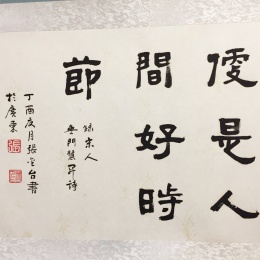 便是人
間好時
節
錄宋人
無門慧開詩
丁酉夏月張台書
於廣東
張